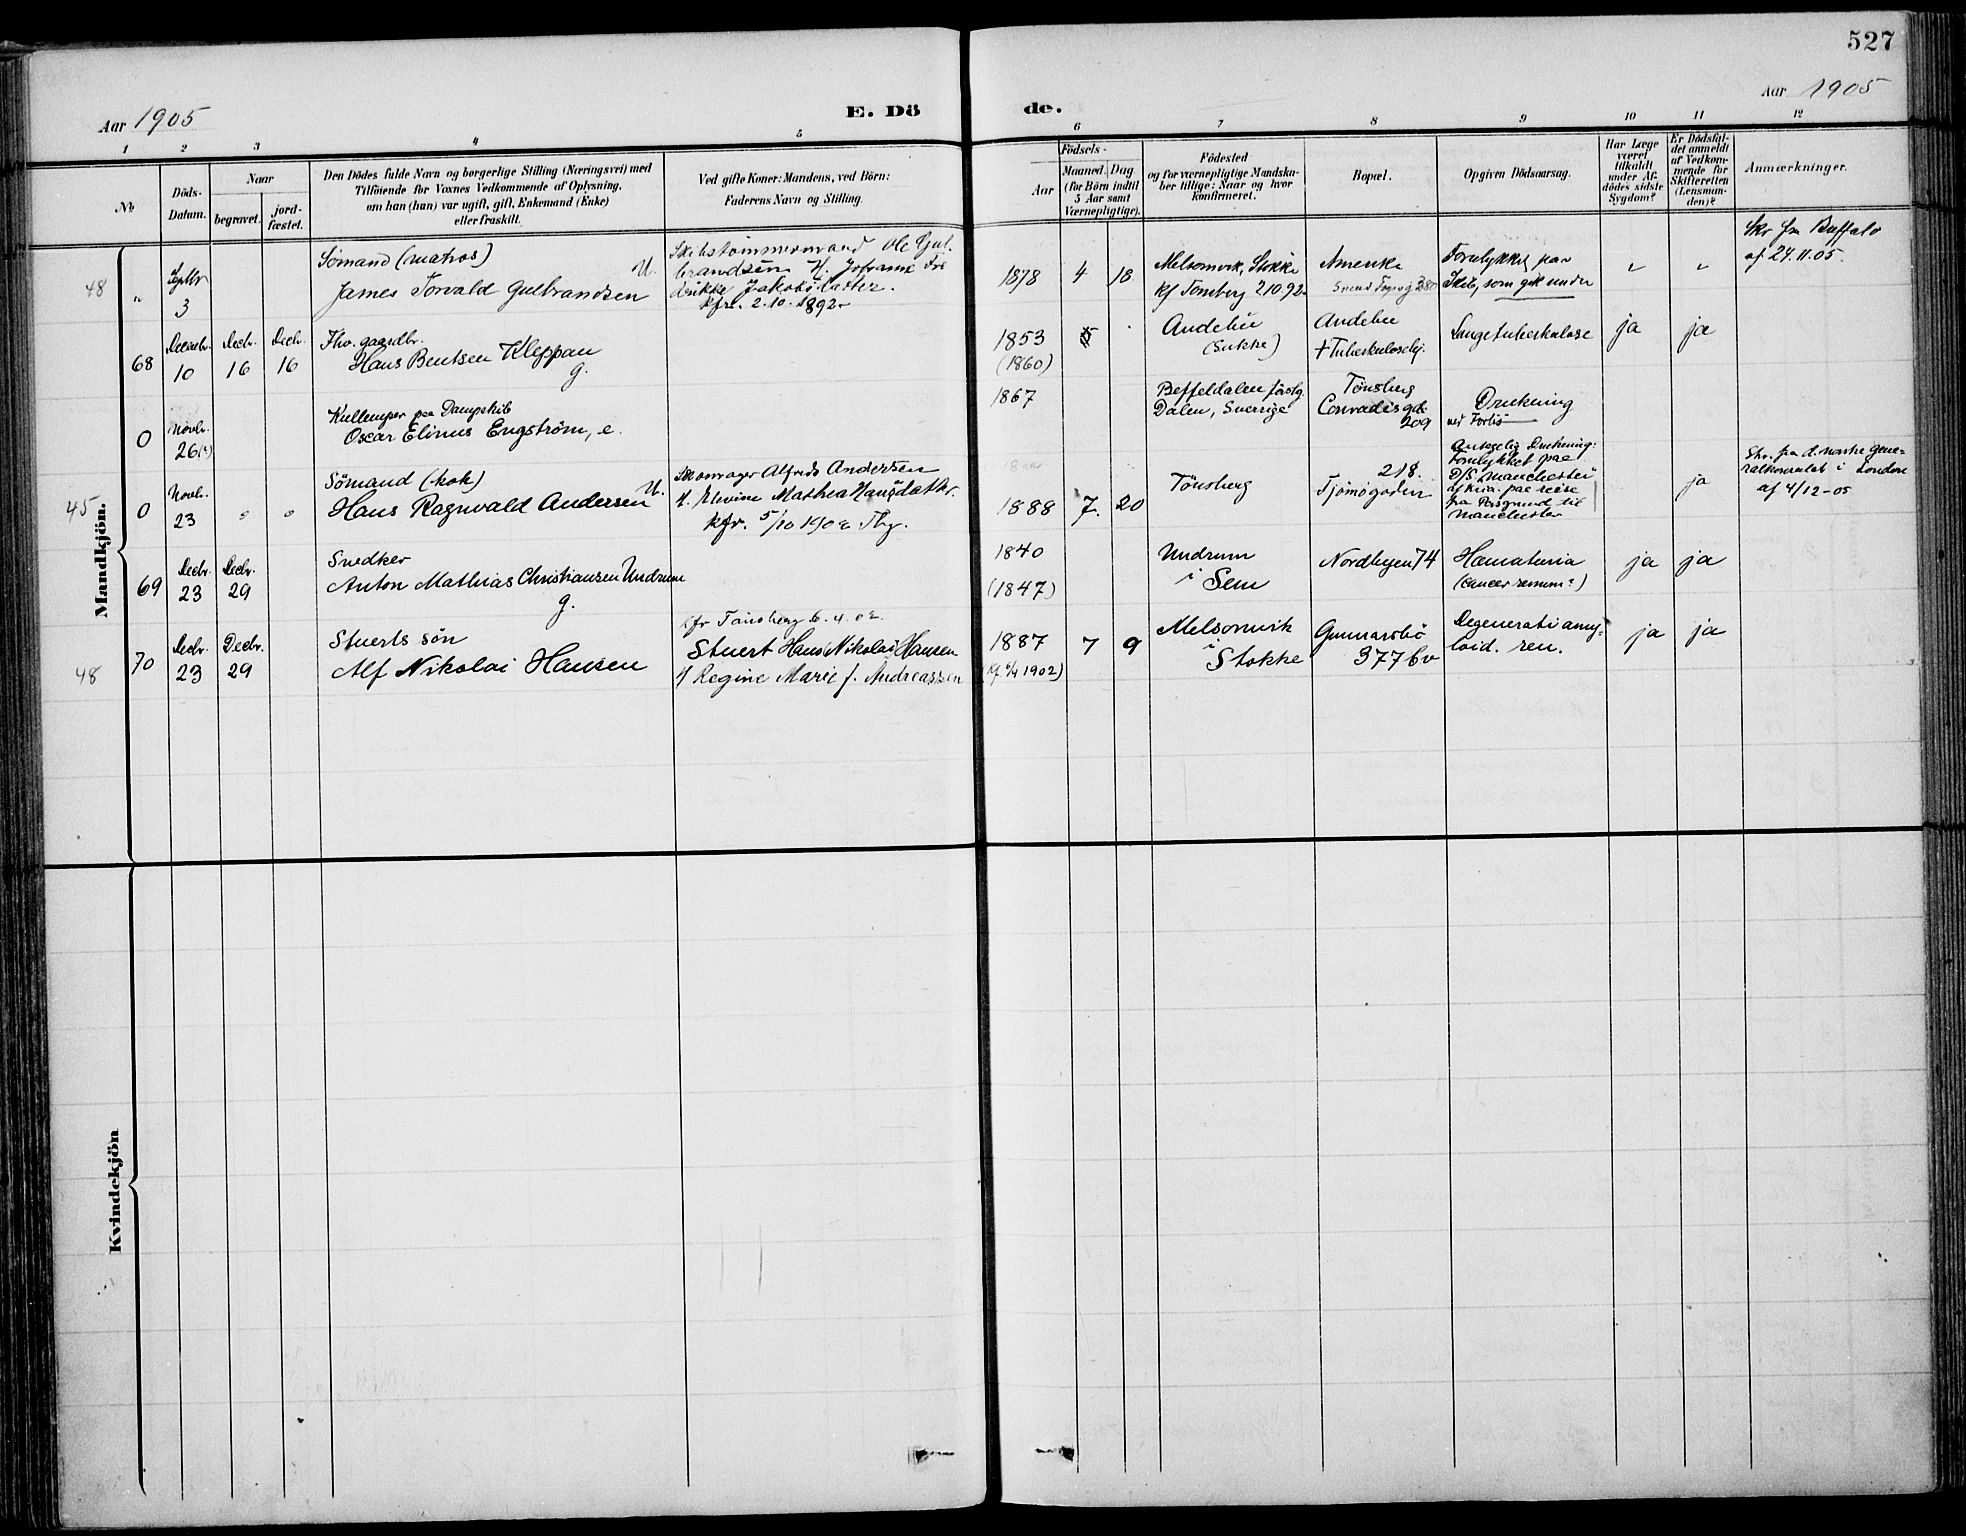 527
Aar 1905
E. Dö de.
Aar 1905
1 2 3 4 5 6 7 8 9 10 11 12
No.
Döds-
Datum.
Naar
begravet.
jord-
fæstet.
Den Dödes fulde Navn og borgerlige Stilling (Næringsvei) med
Tilföiende for Voxnes Vedkommende af Oplysning,
om han (hun) var ugift, gift, Enkemand (Enke)
eller fraskilt.
Ved gifte Koner: Mandens, ved Börn:
Faderens Navn og Stilling.
Födsels-
Aar
Maaned. Dag
(for Börn indtil
5 Aar samt
Værnepligtige).
Födested
og for værnepligtige Mandska-
ber tillige: Naar og hvor
konfirmeret.
Bopæl.
Opgiven Dödsaarsag.
Har Læge
været
tilkaldt
under Af-
dödes sidste
Sygdom?
Er Dödsfal-
det anmeldt
af Vedkom-
mende for
Skifteretten
(Lensman-
den)?
Anmærkninger.
Mandkjön.
48
"
Septbr
3
Sömand (matros)
U.
James Torvald Gulbrandsen
Skibstömmermand Ole Gul-
brandsen H. Johanne Fre
drikke Jakobsdatter.
kfr. 2.10.1892
1878 4 18
Melsomvik, Stokke
kf Tönsberg 2.10.92
Amerika
Forulykket paa
Skib, som gik under
" "
Skr fra Buffalo
af 24.11.05.
68
Decbr.
10
Decbr.
16
Decbr.
16
Fhv. gaardbr.
Hans Bentsen Kleppan
g.
1853
(1860)
Andebu
(Sukke)
Andebu
+ Tuberkulosehj.
Lungetuberkulose
ja ja
0
Novbr.
26(?)
Kullemper paa Dampskib
Oscar Elinus Engström, e.
1867
Beffeldalen förstg.
Dalen, Sverrige
Tönsberg
Conradisgd.
209
Drukning
ved Forlis
45
0
Novbr.
23
" "
Sömand (kok)
U.
Hans Ragnvald Andersen
Skomager Alfred Andersen
H. Elevine Mathea Hansdatter.
kfr. 5/10 1902 Tbg.
1888 7. 20
Tönsberg
218.
Tjömögaden
Antagelig Drukning:
Forulykket paa
D/S Manchester
af Kria. paa reise
fra Porsgrund til
Manchester
ja
Skr. fra d. norske gene-
ralkonsulat i London
af 4/12-05
69
Decbr.
23
Decbr.
29
Snedker
Anton Mathias Christiansen Undrum
g.
1840
(1847)
Undrum
i Sem
Nordbyen 74
Hæmaturia
(cancer renum?)
ja ja
48
70
Decbr.
23
Decbr.
29
Stuerts sön
Alf Nikolai Hansen
kfr Tönsberg 6.4.02
Stuert Hans Nikolai Hansen
H Regine Marie f. Andreassen
1887 7 9
(kf 6/4 1902)
Melsomvik
i Stokke
Gunnarsbö
377 bv
Degenerati amy-
loid. ren.
ja ja
Kvindekjön